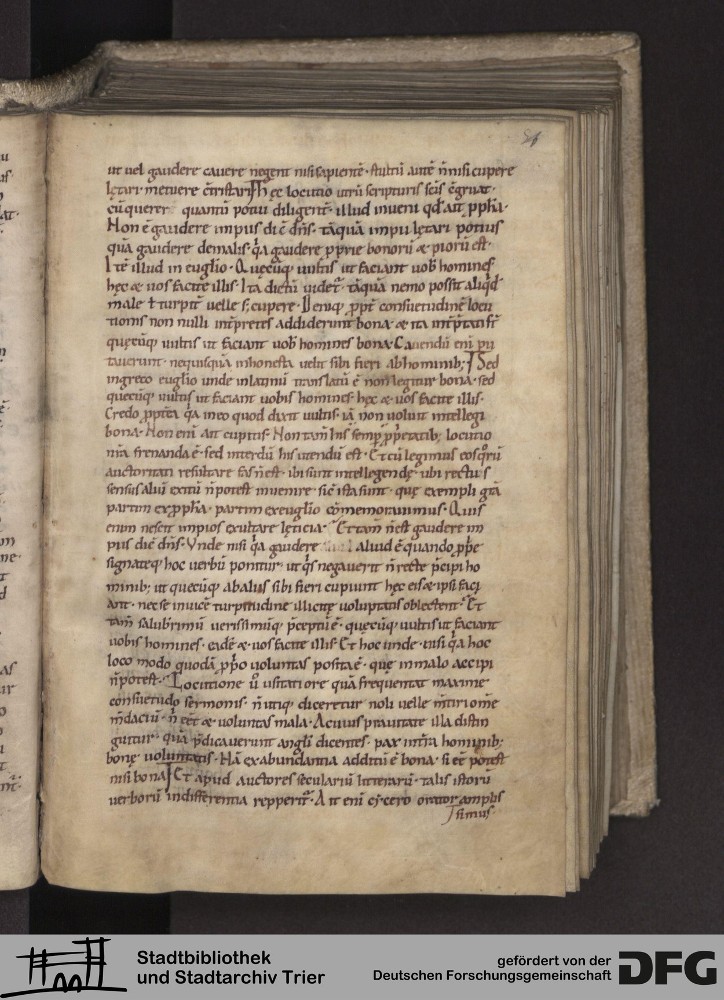 56
ut uel gaudere cauere negent nisi sapientē · stultū autē n̄ nisi cupere
lętari metuere c̄tristari hęc locutio utrū scripturis scīs c̄gruat ·
cū quererē quantū potui diligent̄ · illud inueni qđ ait pph̄a ·
Non ē gaudere impiis dic̄ dn̄s · tāquā impii lętari potius
quā gaudere de malis · q̄a gaudere p̱prie bonorū & piorū est ·
Itē illud in eugl̄io · Quęcūq̨ uultis ut faciant uob̄ homines
hęc & uos facite illis · Ita dictū uidet̄ · tāquā nemo possit aliqđ
male ł turpit̄ uelle s; cupere · Deniq̨ ppt̄ consuetudinē locu
tionis non nulli int̄pretes addiderunt bona · & ita int̄p̄tati st̄
quęcūq̨ uultis ut faciant uob̄ homines bona · Cauendū enī pu
tauerunt · ne quisquā inhonesta uelit sibi fieri ab hominib; Sed
in greco eugl̄io unde in latinū translatū ē non legitur bona · sed
quecūq̨ uultis ut faciant uobis homines · hęc & uos facite illis ·
Credo ppt̄ea q̄a in eo quod dixit uultis · iā non uoluit intellegi
bona · Non enī ait cupitis · Non tam̄ his semp̱ pp̱etatib; locutio
nr̄a frenanda ē · sed interdū his utendū est · Et cū legimus eos q̄rū
auctoritati resultare fas n̄ est · ibi sunt intellegendę · ubi rectus
sensus aliū exitū n̄ potest inuenire · sic̄ ista sunt · quę exempli gr̄a
partim ex pph̄a · partim ex eugl̄io cōmemorauimus · Quis
enim nescit impios exultare lęticia · Et tam̄ n̄ est gaudere im
piis dic̄ dn̄s · Vnde nisi q̄a gaudere aliud ē quando pp̱e
signateq̨ hoc uerbū ponitur · ut q̄s negauerit n̄ recte p̄cipi ho
minib; ut quecūq̨ ab aliis sibi fieri cupiunt hęc eis & ipsi faci
ant · ne se inuicē turpitudine illicitę uoluptatis oblectent · Et
tam̄ saluƀrimū uerissimūq̨ p̄ceptū ē · quęcūq̨ uultis ut faciant
uobis homines · eadē & uos facite illis · Et hoc unde · nisi q̄a hoc
loco modo quodā pp̱o uoluntas posita ē · que in malo accipi
n̄ potest · Locutione ū usitatiore quā frequentat maxime
consuetudo sermonis · n̄ utiq̨ diceretur noli uelle m̄tiri om̄e
m̄daciū · n̄ eēt & uoluntas mala · A cuius prauitate illa distin
guitur · quā p̄dicauerunt angl̄i dicentes · pax in t̄ra hominib;
bonę uoluntatis · Nā ex abundantia additū ē bona · si eē potest
nisi bona Et apud auctores seculariū litterarū · talis istorū
uerborū indifferentia repperit̄ · Ait enī cycero orator amplis
simus
Stadtbibliothek
und Stadtarchiv Trier
gefördert von der
Deutschen Forschungsgemeinschaft
DFG